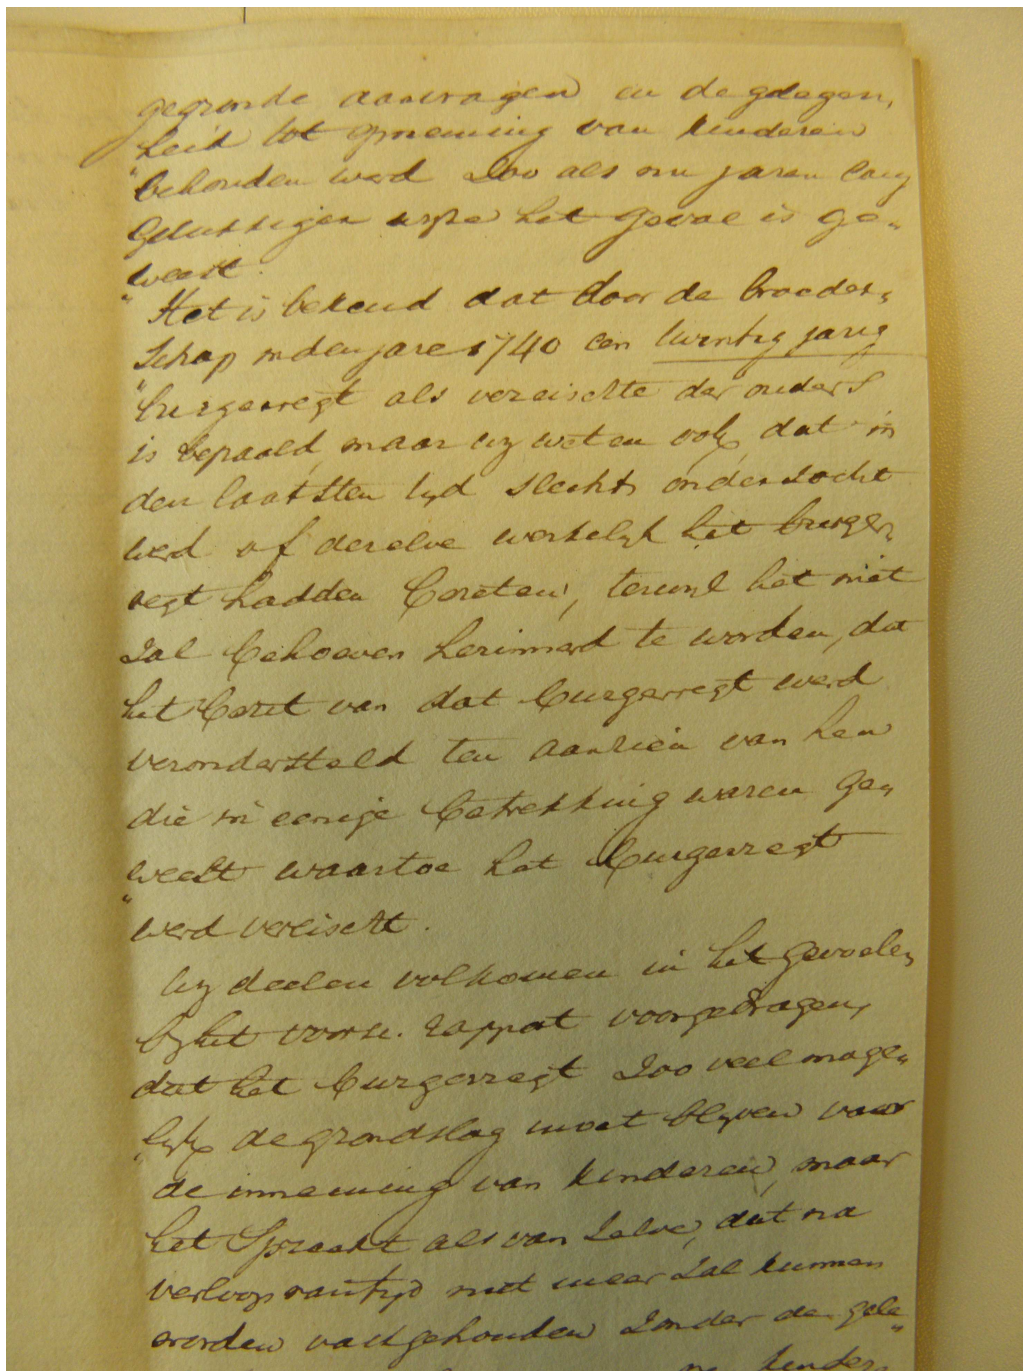 gegronde aanvragen en de gelegen„
heid tot opneming van kinderen
"behouden werd zoo als nu jaren lang
gelukkiger wyze het geval is ge„
weest.
"Het is bekend dat door de broeder„
schap in den jare 1740 een twintig jarig
"burgerregt als vereischte der ouders
is bepaald, maar wy weten ook, dat in
den laatsten tyd slechts onderzocht
werd of dezelve werkelyk het burger„
regt hadden bezeten, terwyl het niet
zal behoeven herinnerd te worden, dat
het bezit van dat burgerregt werd
verondersteld ten aanzien van hen
die in eenige betrekking waren ge„
weest waartoe het burgerregt
"werd vereischt.
Wy deelen volkomen in het gevoelen
by het voorsz. rapport voorgedragen,
dat het burgerregt zoo veel moge„
lyk de grondslag moet blyven voor
de inneming van kinderen, maar
het spreekt als van zelve, dat na
verloop van tyd niet meer zal kunnen
worden vastgehouden zonder de gele„
kinder„